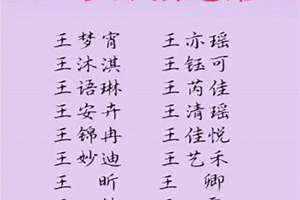 王梦宵 王亦瑶
王沐淇 王钰可
王语琳 王芮佳
王安卉 王清瑶
王锦冉 王佳悦
王妙迪 王艺禾
王 昕 王 卿
王 王